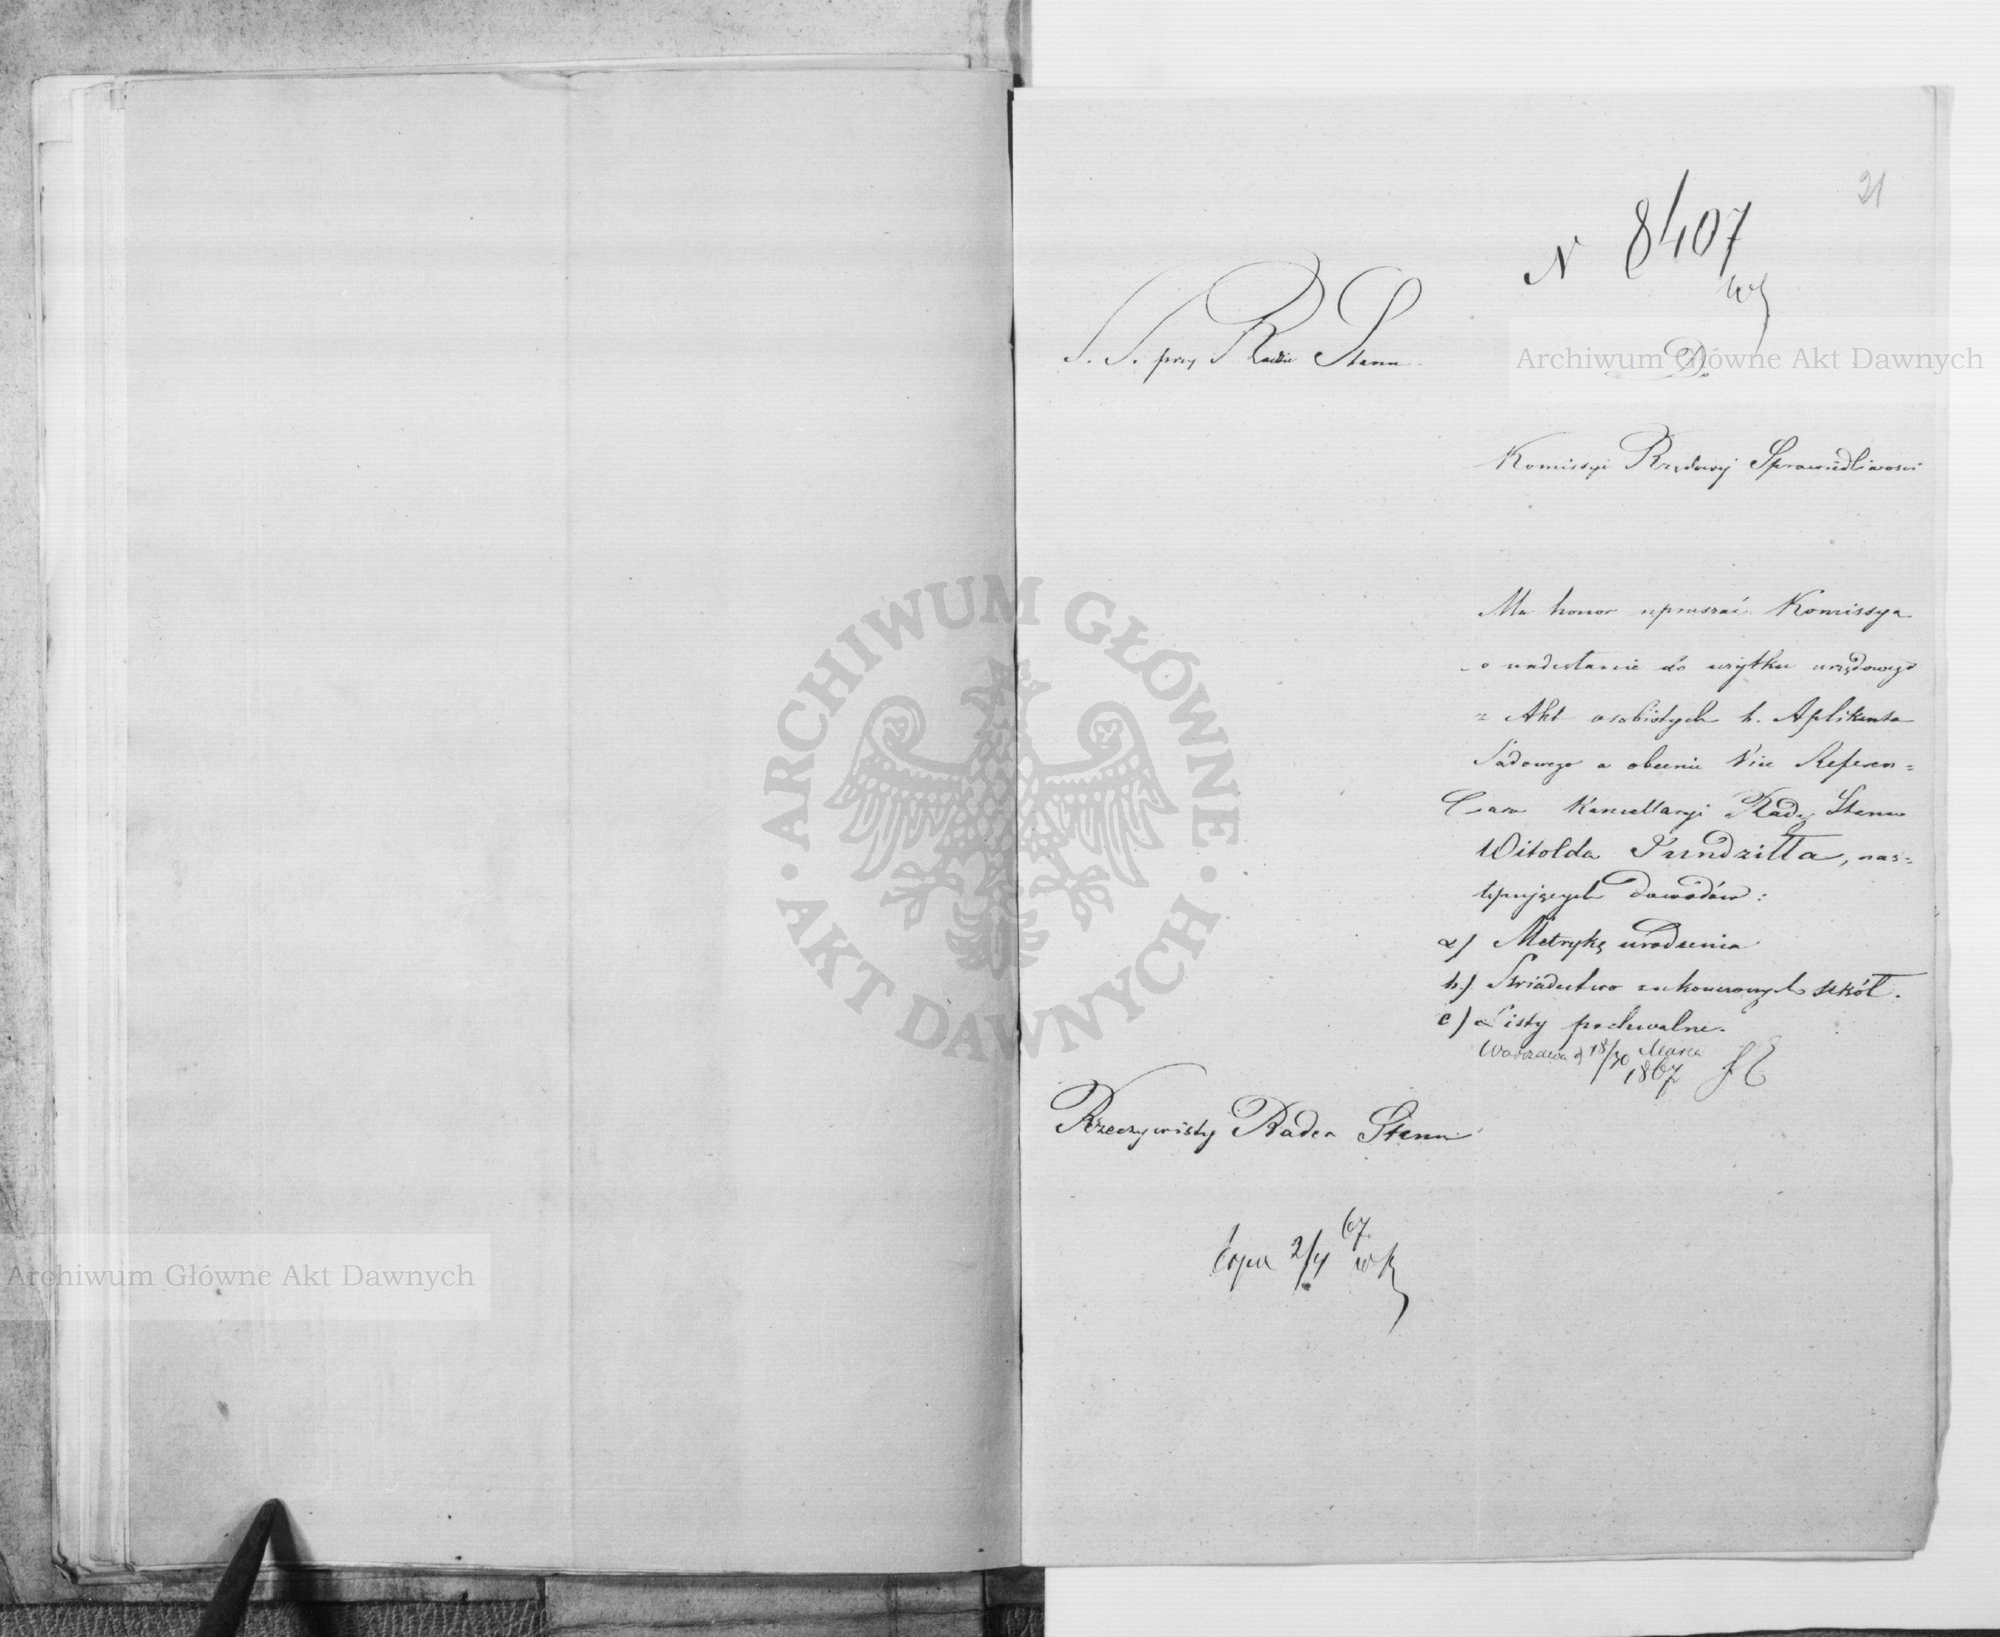 21
N 8407
S. S. przy Radzie Stanu.
Do
Komissyi Rządowej Sprawiedliwości
Ma honor upraszać Komissya
o nadesłanie do użytku urzędowego
z Akt osobistych b. Aplikanta
Sądowego a obecnie Vice Referen=
Kancellaryi Rady Stanu
Witolda Jundziłła, nas=
tępujących dowodów:
a) Metrykę urodzenia
b.) Świadectwo z ukończonych szkół.
c) Listy pochwalne.
Warszawa d 18/30 Marca
1867
Rzeczywisty Radca Stanu
2/4 67
Archiwum Główne Akt Dawnych
Archiwum Główne Akt Dawnych
ARCHIWUM GŁÓWNE · AKT DAWNYCH ·